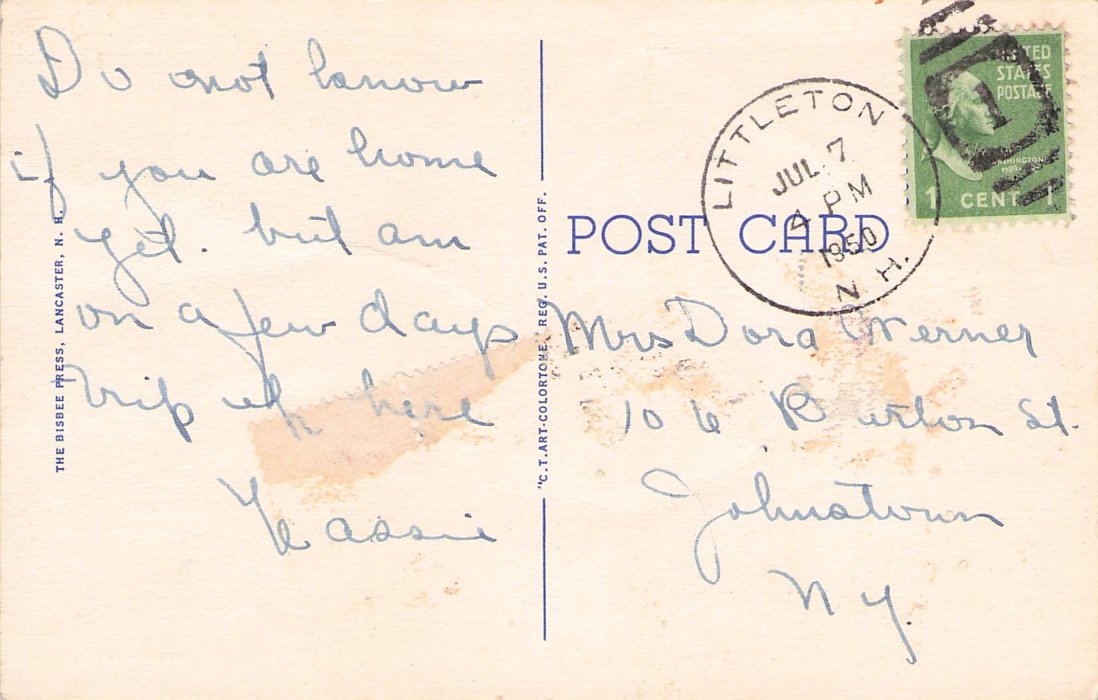 Do not know
if you are home
yet. but am
on a few days
trip up here
Kassie
THE BISBEE PRESS, LANCASTER, N. H.
"C.T. ART-COLORTONE, REG. U.S. PAT. OFF.
POST CARD
LITTLETON
JUL 7
4 PM
1950
N. H.
UNITED
STATES
POSTAGE
WASHINGTON
1 CENT 1
Mrs Dora Werner
106 Burton St.
Johnstown
N y.